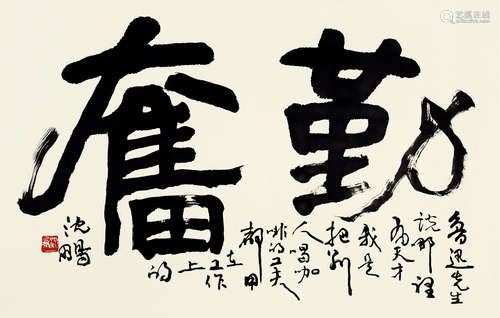 勤奮
魯迅先生
說那裡
有天才
我是
把別
人喝咖
啡的工夫
都用
在工作
上的
沈鵬
艺氛在线